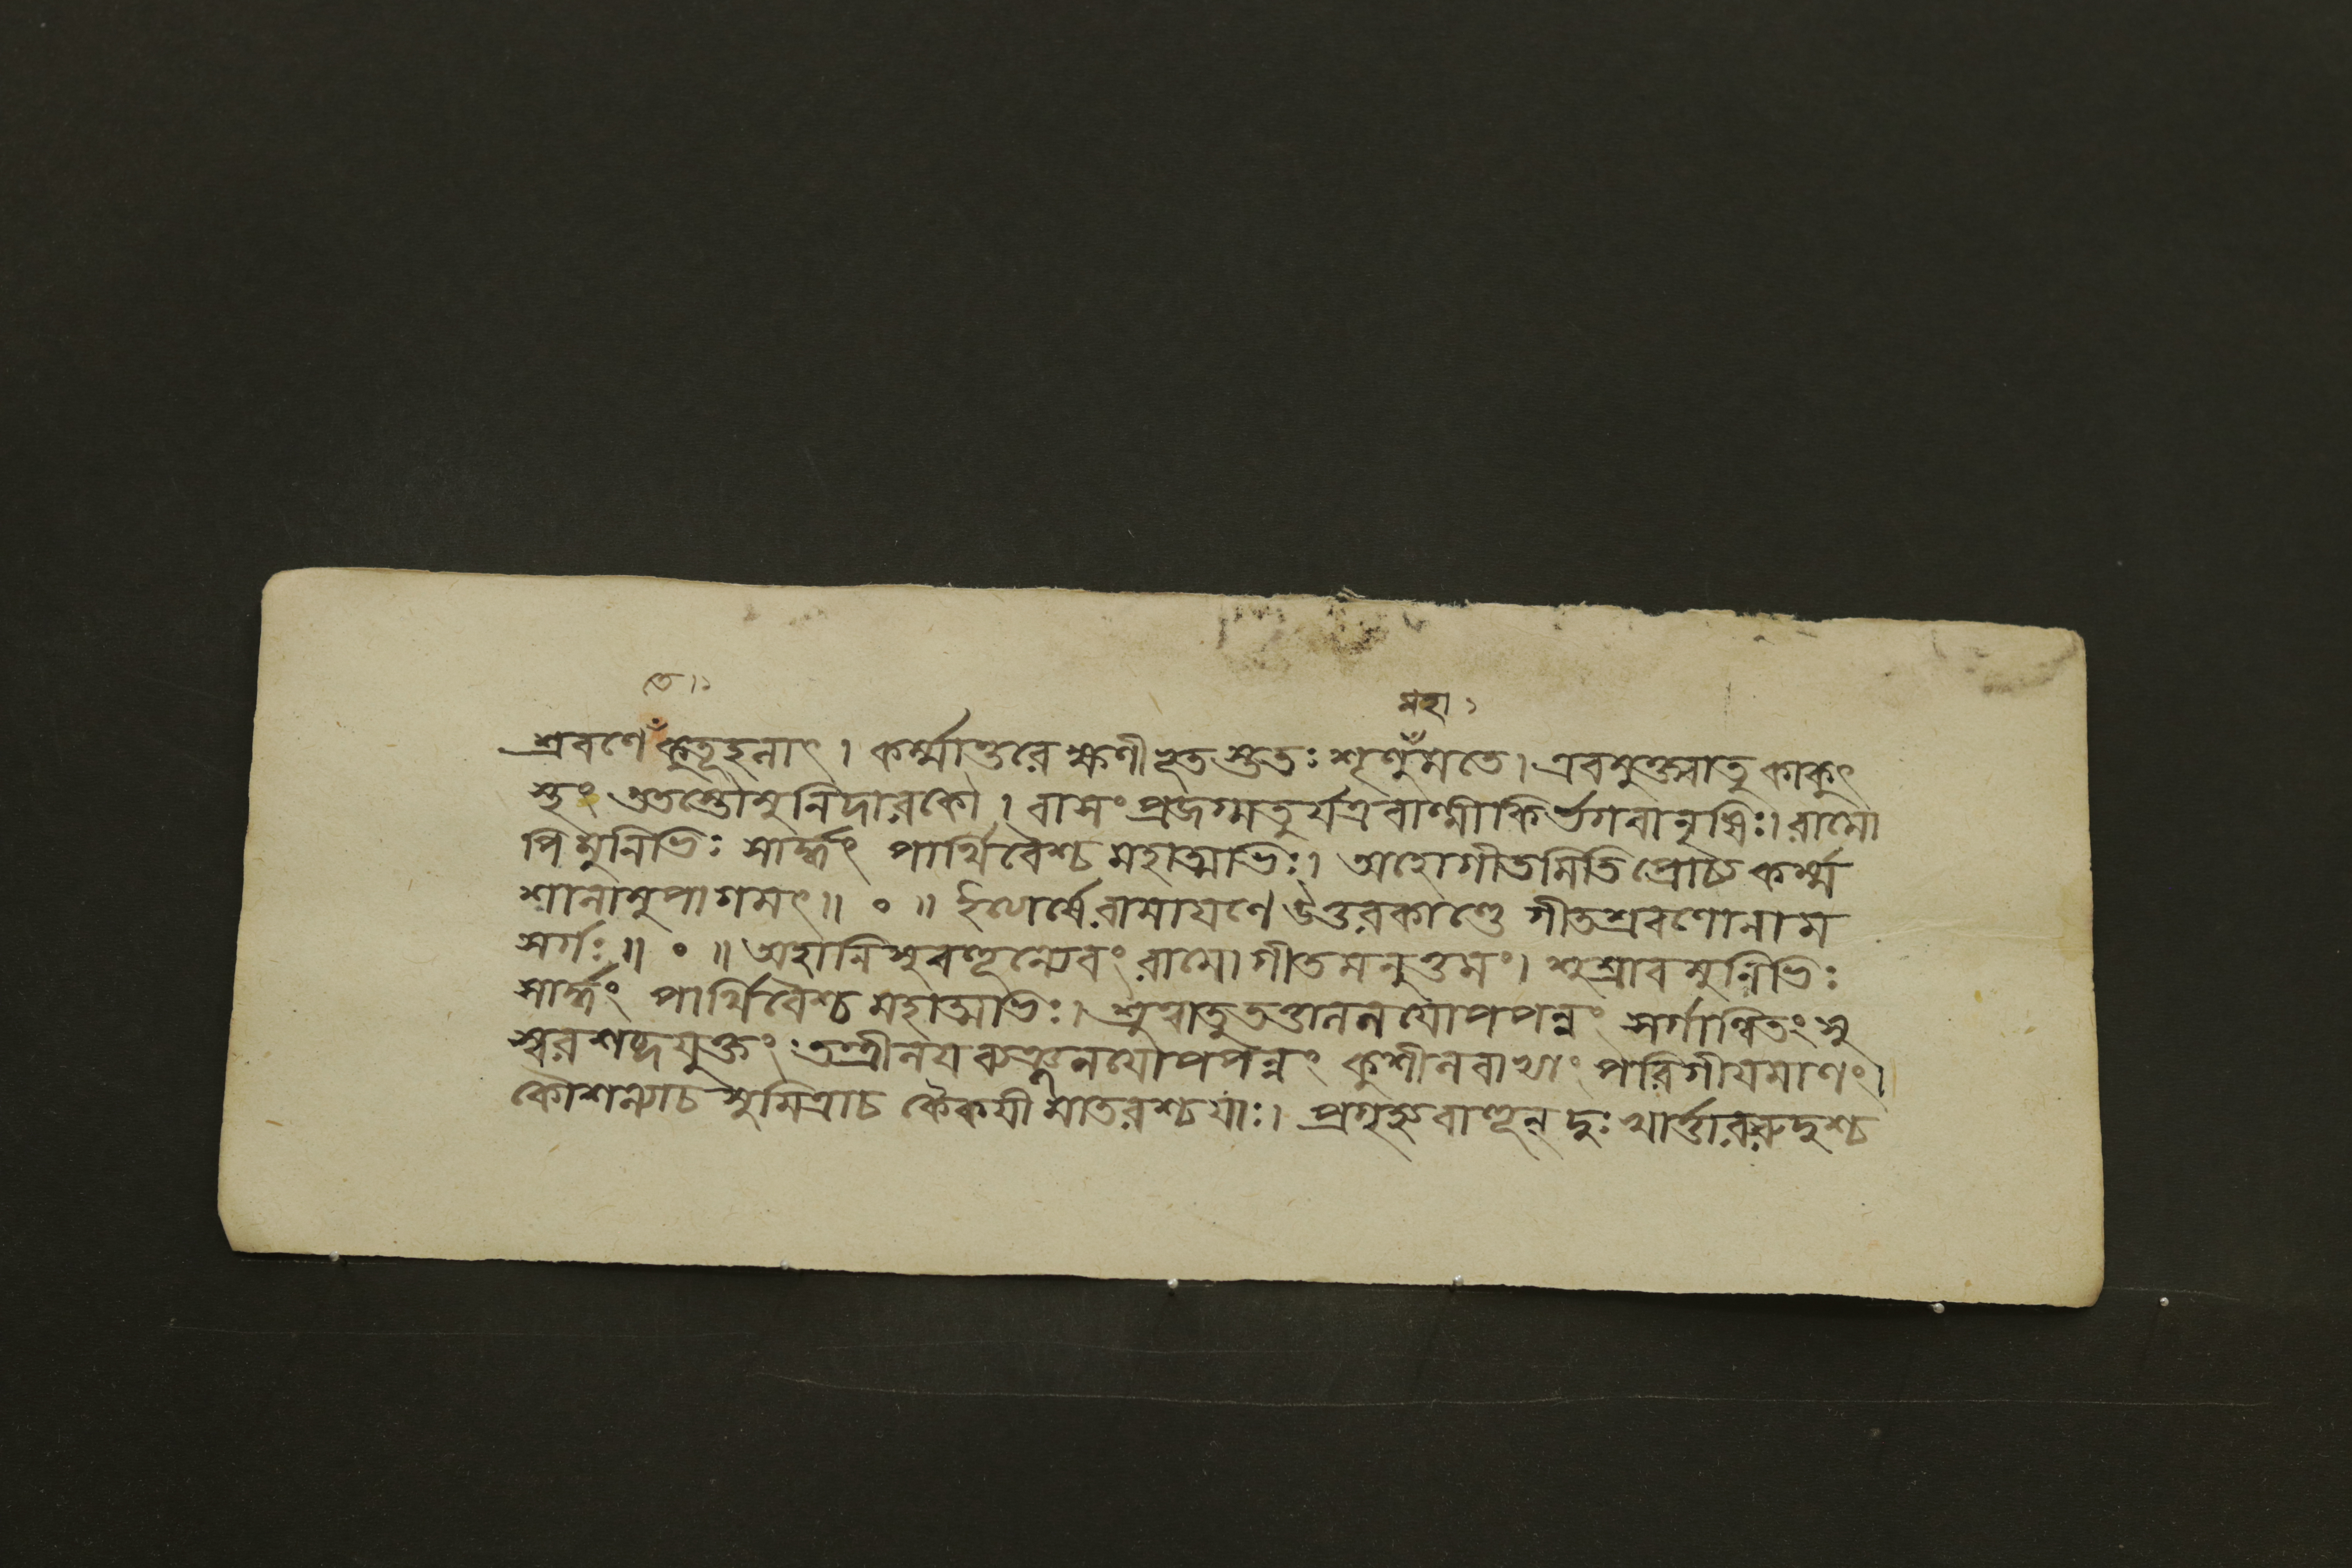 তে।১
মহা১
শ্রবণে কুতূহলাৎ। কর্ম্মান্তরে ক্ষণীভূতস্তুতঃ শৃণু মতে। এবমুক্ত্বাতু কাকুৎ
স্থং ততস্তৌ মুনিদারকৌ। বাসং প্রজগ্মতুর্যত্রবাল্মীকির্ভগবানৃষিঃ। রামো
পি মুনিভিঃ সার্দ্ধং পার্থিবৈশ্চ মহাত্মভিঃ। অহোগীতমিতিপ্রোচ্য কর্ম্ম
শালামুপাগমৎ॥ ० ॥ ইত্যার্ষেরামায়ণে উত্তরকাণ্ডে গীতশ্রবণোনাম
সর্গঃ॥ ० ॥ অহানিসুবহূন্যেবং রামোগীতমনুত্তমং। শুশ্রাবমুনিভিঃ
সার্দ্ধং পার্থিবৈশ্চ মহাত্মভিঃ। শ্রুত্বাতুততাললয়োপপন্নং সর্গান্বিতংসু
স্বরশব্দযুক্তং তন্ত্রীলয়ব্যঞ্জনয়োপপন্নং কুশীলবাভ্যাং পরিগীয়মাণং।
কৌশল্যাচ সুমিত্রাচ কৈকয়ী মাতরশ্চয়াঃ। প্রগৃহ্যবাহূন্ দুঃখার্ত্তারুরুদুশ্চ